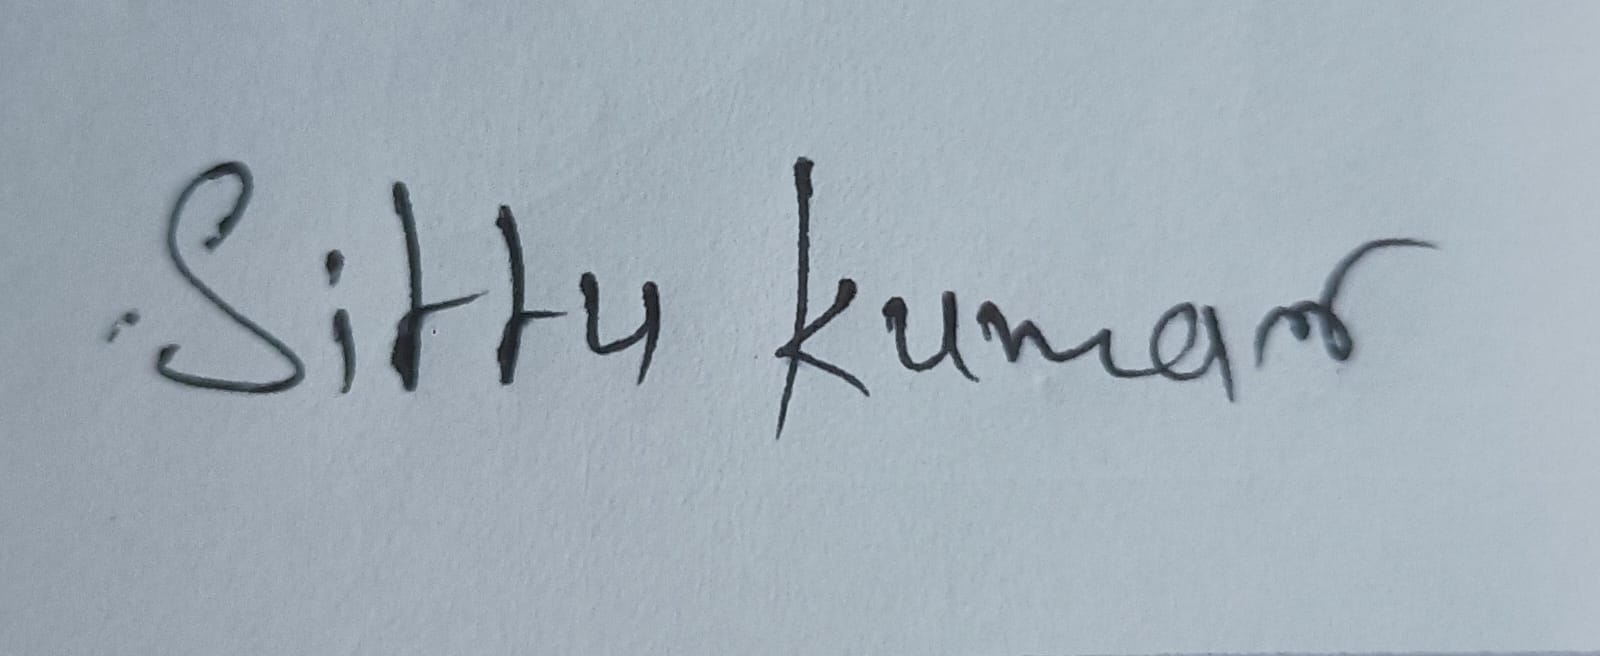 Sittu kumar